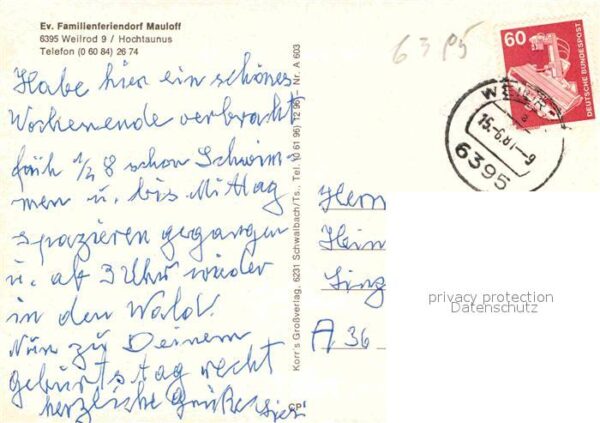 Ev. Familienferiendorf Mauloff
6395 Weilrod 9 / Hochtaunus
Telefon (0 60 84) 26 74
Habe hier ein schönes
Wochenende verbracht
früh 1/2 8 schon Schwim-
men u. bis Mittag
spazieren gegangen
u. ab 3 Uhr wieder
in den Wald.
Nun zu Deinem
geburtstag recht
herzliche Grüße
Korr's Großverlag, 6231 Schwalbach/Ts., Tel. (0 61 96) 12 95 – Nr. A 603
6395
60
DEUTSCHE BUNDESPOST
15.-6.81-9
6395
Herrn
Hein
A 36
privacy protection
Datenschutz